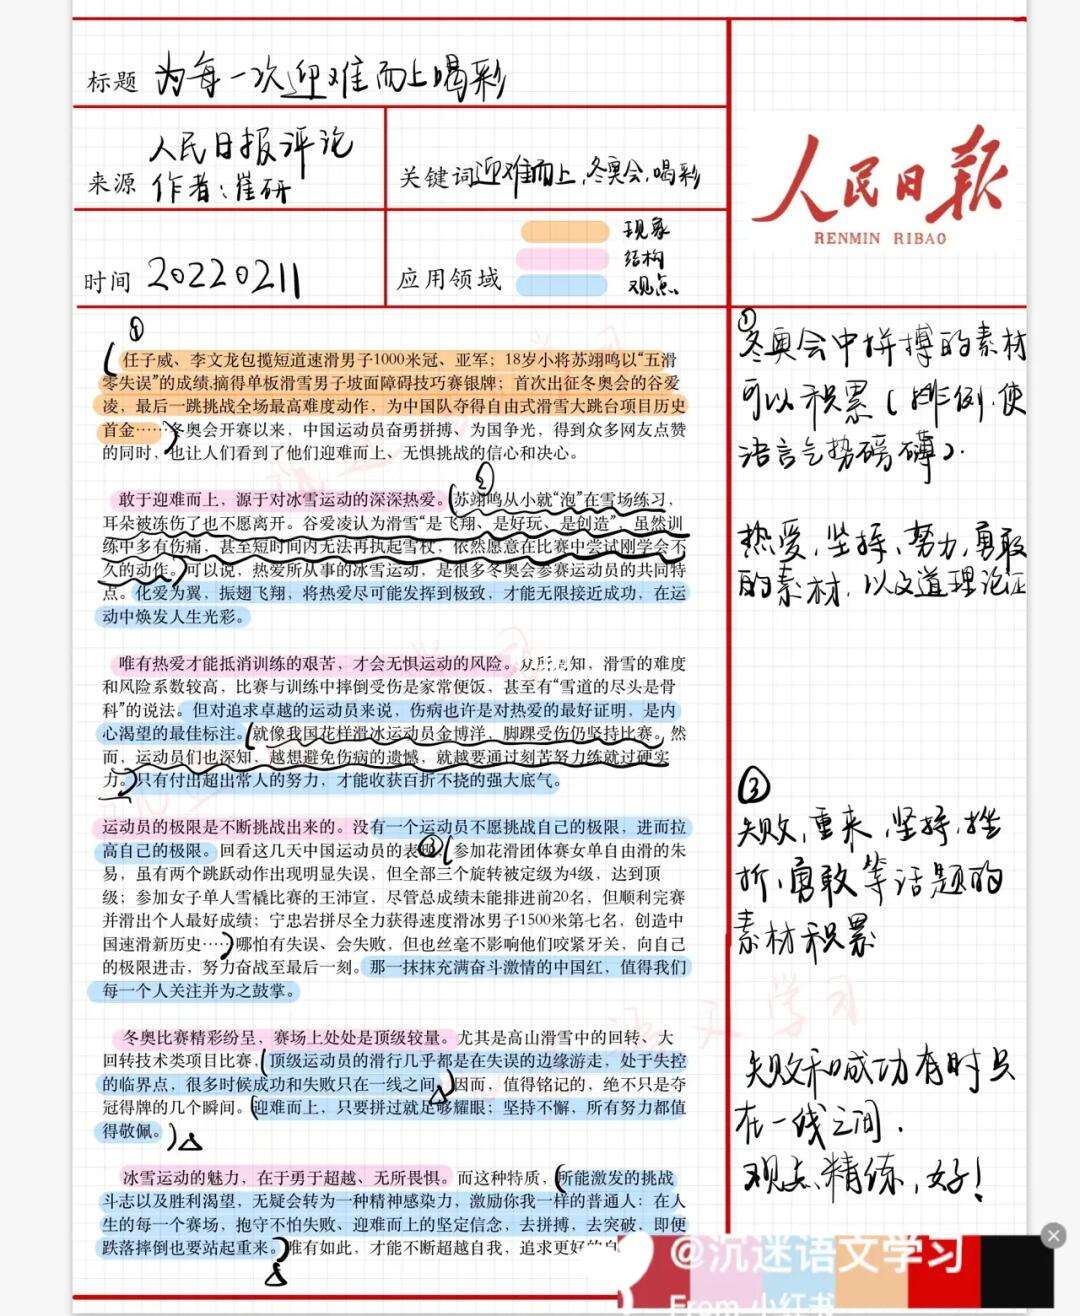 标题 为每一次迎难而上喝彩
来源 人民日报评论
作者：崔妍
关键词 迎难而上，冬奥会，喝彩
时间 20220211
应用领域
现象
结构
观点
人民日报
RENMIN RIBAO
①
任子威、李文龙包揽短道速滑男子1000米冠、亚军；18岁小将苏翊鸣以“五滑
零失误”的成绩.摘得单板滑雪男子坡面障碍技巧赛银牌；首次出征冬奥会的谷爱
凌，最后一跳挑战全场最高难度动作，为中国队夺得自由式滑雪大跳台项目历史
首金……冬奥会开赛以来，中国运动员奋勇拼搏、为国争光，得到众多网友点赞
的同时，也让人们看到了他们迎难而上、无惧挑战的信心和决心。
②
敢于迎难而上，源于对冰雪运动的深深热爱。苏翊鸣从小就“泡”在雪场练习，
耳朵被冻伤了也不愿离开。谷爱凌认为滑雪“是飞翔、是好玩、是创造”，虽然训
练中多有伤痛，甚至短时间内无法再执起雪杖，依然愿意在比赛中尝试刚学会不
久的动作。可以说，热爱所从事的冰雪运动，是很多冬奥会参赛运动员的共同特
点。化爱为翼，振翅飞翔，将热爱尽可能发挥到极致，才能无限接近成功，在运
动中焕发人生光彩。
唯有热爱才能抵消训练的艰苦，才会无惧运动的风险。众所周知，滑雪的难度
和风险系数较高，比赛与训练中摔倒受伤是家常便饭，甚至有“雪道的尽头是骨
科”的说法。但对追求卓越的运动员来说，伤病也许是对热爱的最好证明，是内
心渴望的最佳标注。就像我国花样滑冰运动员金博洋、脚踝受伤仍坚持比赛。然
而，运动员们也深知，越想避免伤病的遗憾，就越要通过刻苦努力练就过硬实
力。只有付出超出常人的努力，才能收获百折不挠的强大底气。
运动员的极限是不断挑战出来的。没有一个运动员不愿挑战自己的极限，进而拉
高自己的极限。回看这几天中国运动员的表 ③ 参加花滑团体赛女单自由滑的朱
易，虽有两个跳跃动作出现明显失误，但全部三个旋转被定级为4级，达到顶
级；参加女子单人雪橇比赛的王沛宣，尽管总成绩未能排进前20名，但顺利完赛
并滑出个人最好成绩；宁忠岩拼尽全力获得速度滑冰男子1500米第七名，创造中
国速滑新历史……哪怕有失误、会失败，但也丝毫不影响他们咬紧牙关，向自己
的极限进击，努力奋战至最后一刻。那一抹抹充满奋斗激情的中国红，值得我们
每一个人关注并为之鼓掌。
冬奥比赛精彩纷呈，赛场上处处是顶级较量。尤其是高山滑雪中的回转、大
回转技术类项目比赛，顶级运动员的滑行几乎都是在失误的边缘游走，处于失控
的临界点，很多时候成功和失败只在一线之间。因而，值得铭记的，绝不只是夺
冠得牌的几个瞬间。迎难而上，只要拼过就足够耀眼；坚持不懈，所有努力都值
得敬佩。
冰雪运动的魅力，在于勇于超越、无所畏惧。而这种特质，所能激发的挑战
斗志以及胜利渴望，无疑会转为一种精神感染力，激励你我一样的普通人：在人
生的每一个赛场，抱守不怕失败、迎难而上的坚定信念，去拼搏，去突破，即便
跌落摔倒也要站起重来。唯有如此，才能不断超越自我，追求更好的自
①
冬奥会中拼搏的素材
可以积累（排例，使
语言气势磅礴）.
热爱，坚持，努力，勇敢
的素材，以文道理论证
③
失败，重来，坚持，挫
折，勇敢等话题的
素材积累
失败和成功有时只
在一线之间.
观点精练，好！
@沉迷语文学习
From 小红书